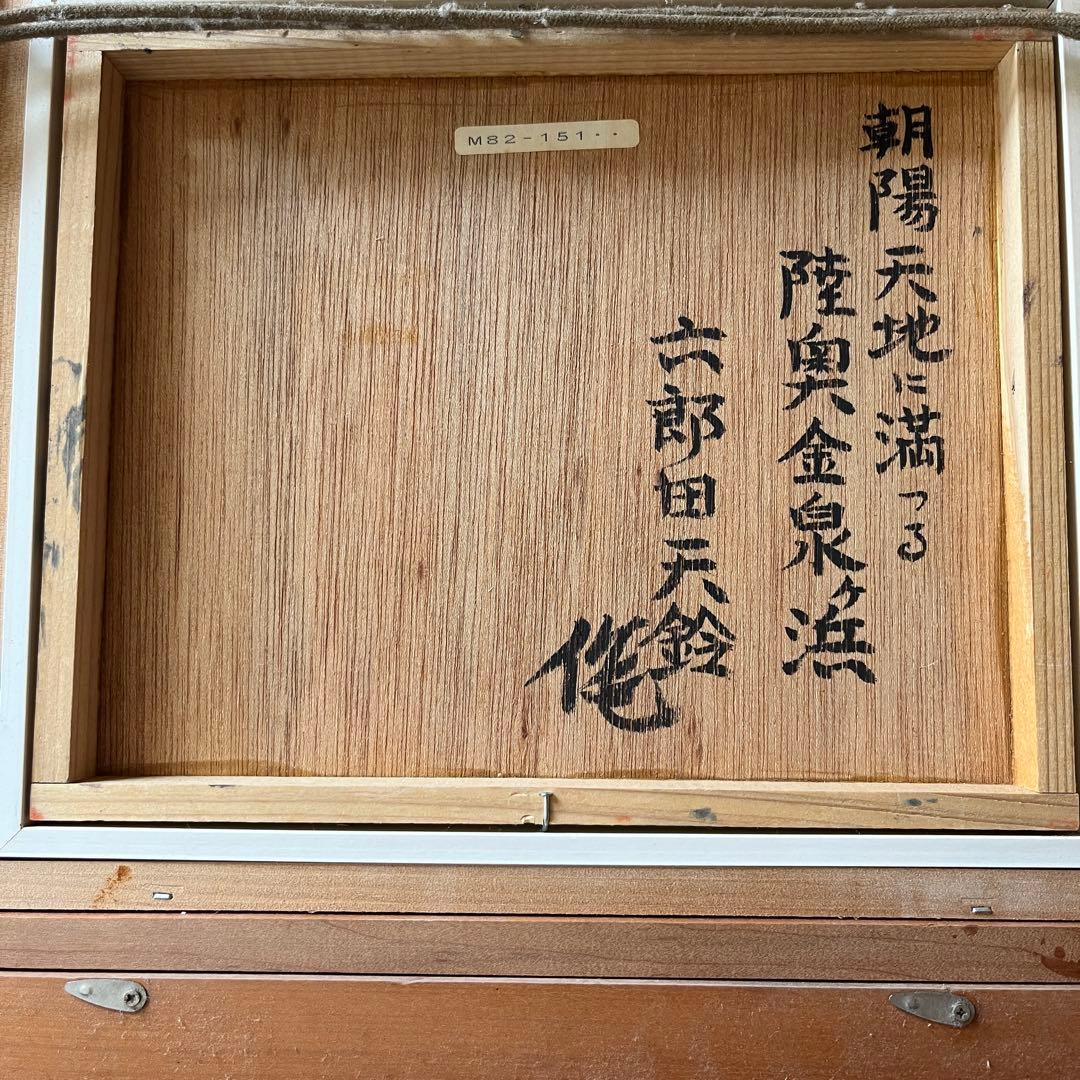 M82-151··
朝陽天地に満つる
陸奥金泉ヶ浜
六郎田天鈴